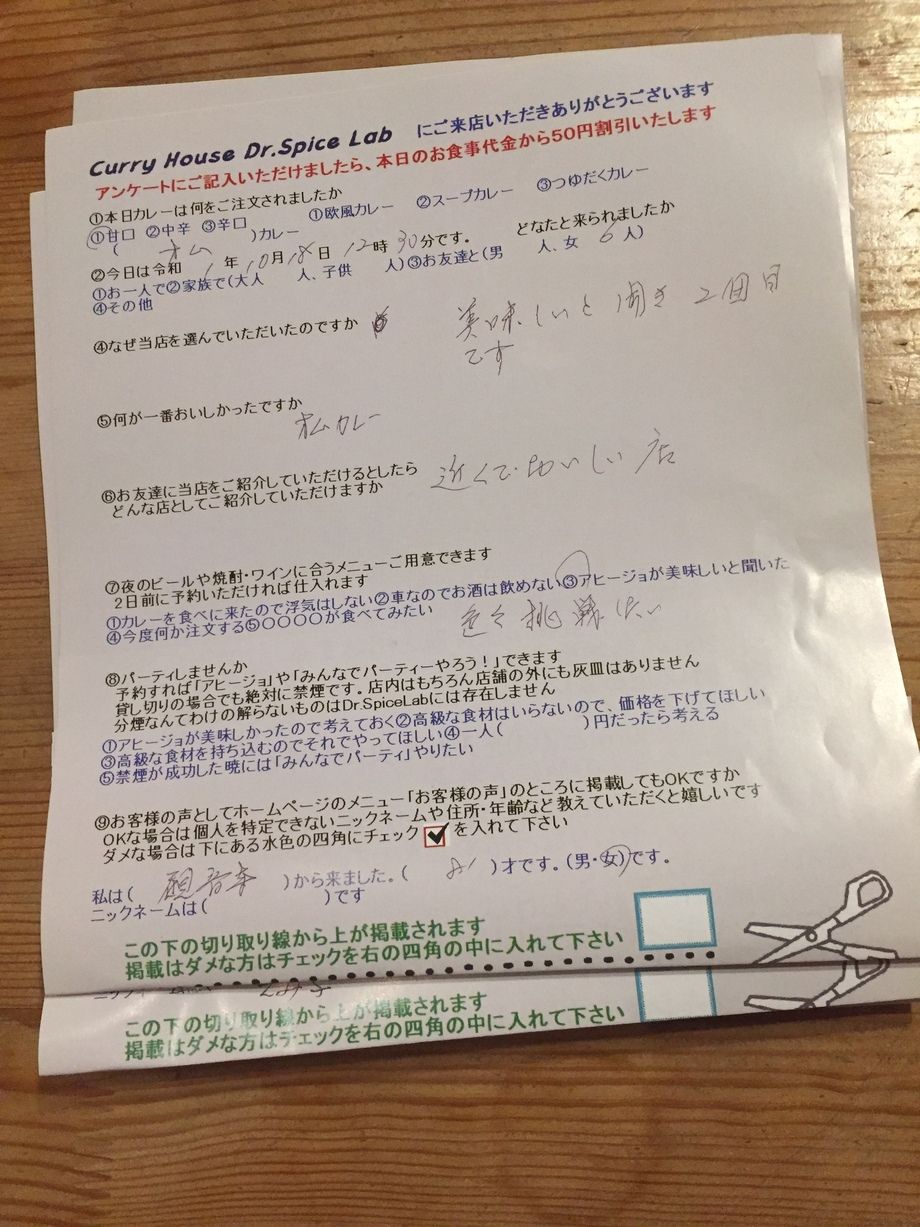 Curry House Dr.Spice Lab にご来店いただきありがとうございます
アンケートにご記入いただけましたら、本日のお食事代金から50円割引いたします
①本日カレーは何をご注文されましたか ①欧風カレー ②スープカレー ③つゆだくカレー
①甘口 ②中辛 ③辛口
( オム )カレー どなたと来られましたか
②今日は令和 1 年 10月 18日 12時 30分です。
①お一人で②家族で(大人 人、子供 人)③お友達と(男 人、女 6人)
④その他
④なぜ当店を選んでいただいたのですか 美味しいと聞き2回目
です
⑤何が一番おいしかったですか
オムカレー
⑥お友達に当店をご紹介していただけるとしたら 近くでおいしい店
どんな店としてご紹介していただけますか
⑦夜のビールや焼酎・ワインに合うメニューご用意できます
2日前に予約いただければ仕入れます
①カレーを食べに来たので浮気はしない②車なのでお酒は飲めない③アヒージョが美味しいと聞いた
④今度何か注文する⑤〇〇〇〇が食べてみたい 色々挑戦したい
⑧パーティしませんか
予約すれば「アヒージョ」や「みんなでパーティーやろう!」できます
貸し切りの場合でも絶対に禁煙です。店内はもちろん店舗の外にも灰皿はありません
分煙なんてわけの解らないものはDr.SpiceLabには存在しません
①アヒージョが美味しかったので考えておく②高級な食材はいらないので、価格を下げてほしい
③高級な食材を持ち込むのでそれでやってほしい④一人( )円だったら考える
⑤禁煙が成功した暁には「みんなでパーティ」やりたい
⑨お客様の声としてホームページのメニュー「お客様の声」のところに掲載してもOKですか
OKな場合は個人を特定できないニックネームや住所・年齢など教えていただくと嬉しいです
ダメな場合は下にある水色の四角にチェック を入れて下さい
私は( 観音寺 )から来ました。( )才です。(男・女)です。
ニックネームは( )です
この下の切り取り線から上が掲載されます
掲載はダメな方はチェックを右の四角の中に入れて下さい
この下の切り取り線から上が掲載されます
掲載はダメな方はチェックを右の四角の中に入れて下さい